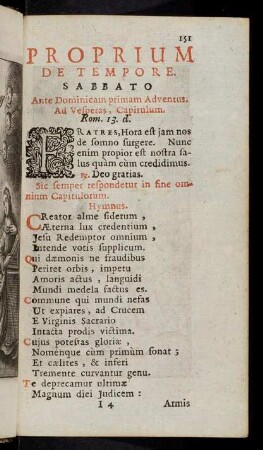 151
PROPRIUM
DE TEMPORE.
SABBATO
Ante Dominicam primam Adventus.
Ad Vesperas, Capitulum.
Rom. 13. d.
FRATRES, Hora est jam nos
de somno surgere. Nunc
enim propior est nostra sa-
lus quàm cùm credidimus.
℟. Deo gratias.
Sic semper respondetur in fine om-
nium Capitulorum.
Hymnus.
CReator alme siderum,
Æterna lux credentium,
Jesu Redemptor omnium,
Intende votis supplicum.
Qui dæmonis ne fraudibus
Periret orbis, impetu
Amoris actus, languidi
Mundi medela factus es.
Commune qui mundi nefas
Ut expiares, ad Crucem
E Virginis Sacrario
Intacta prodis victima.
Cujus potestas gloriæ,
Nomenque cùm primùm sonat;
Et cælites, & inferi
Tremente curvantur genu.
Te deprecamur ultimæ
Magnum diei Judicem:
I 4 Armis